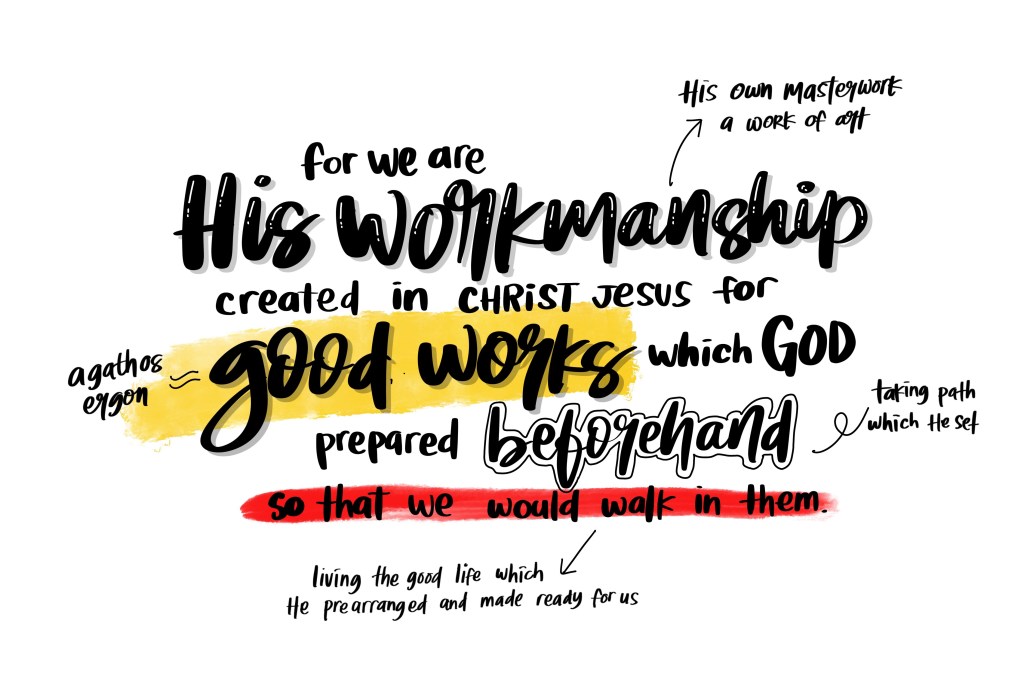 His own masterwork
a work of art
for we are
His workmanship
created in CHRiST JESUS for
good works which GOD
agathos
ergon
prepared beforehand
taking path
which He set
so that we would walk in them.
living the good life which
He prearranged and made ready for us